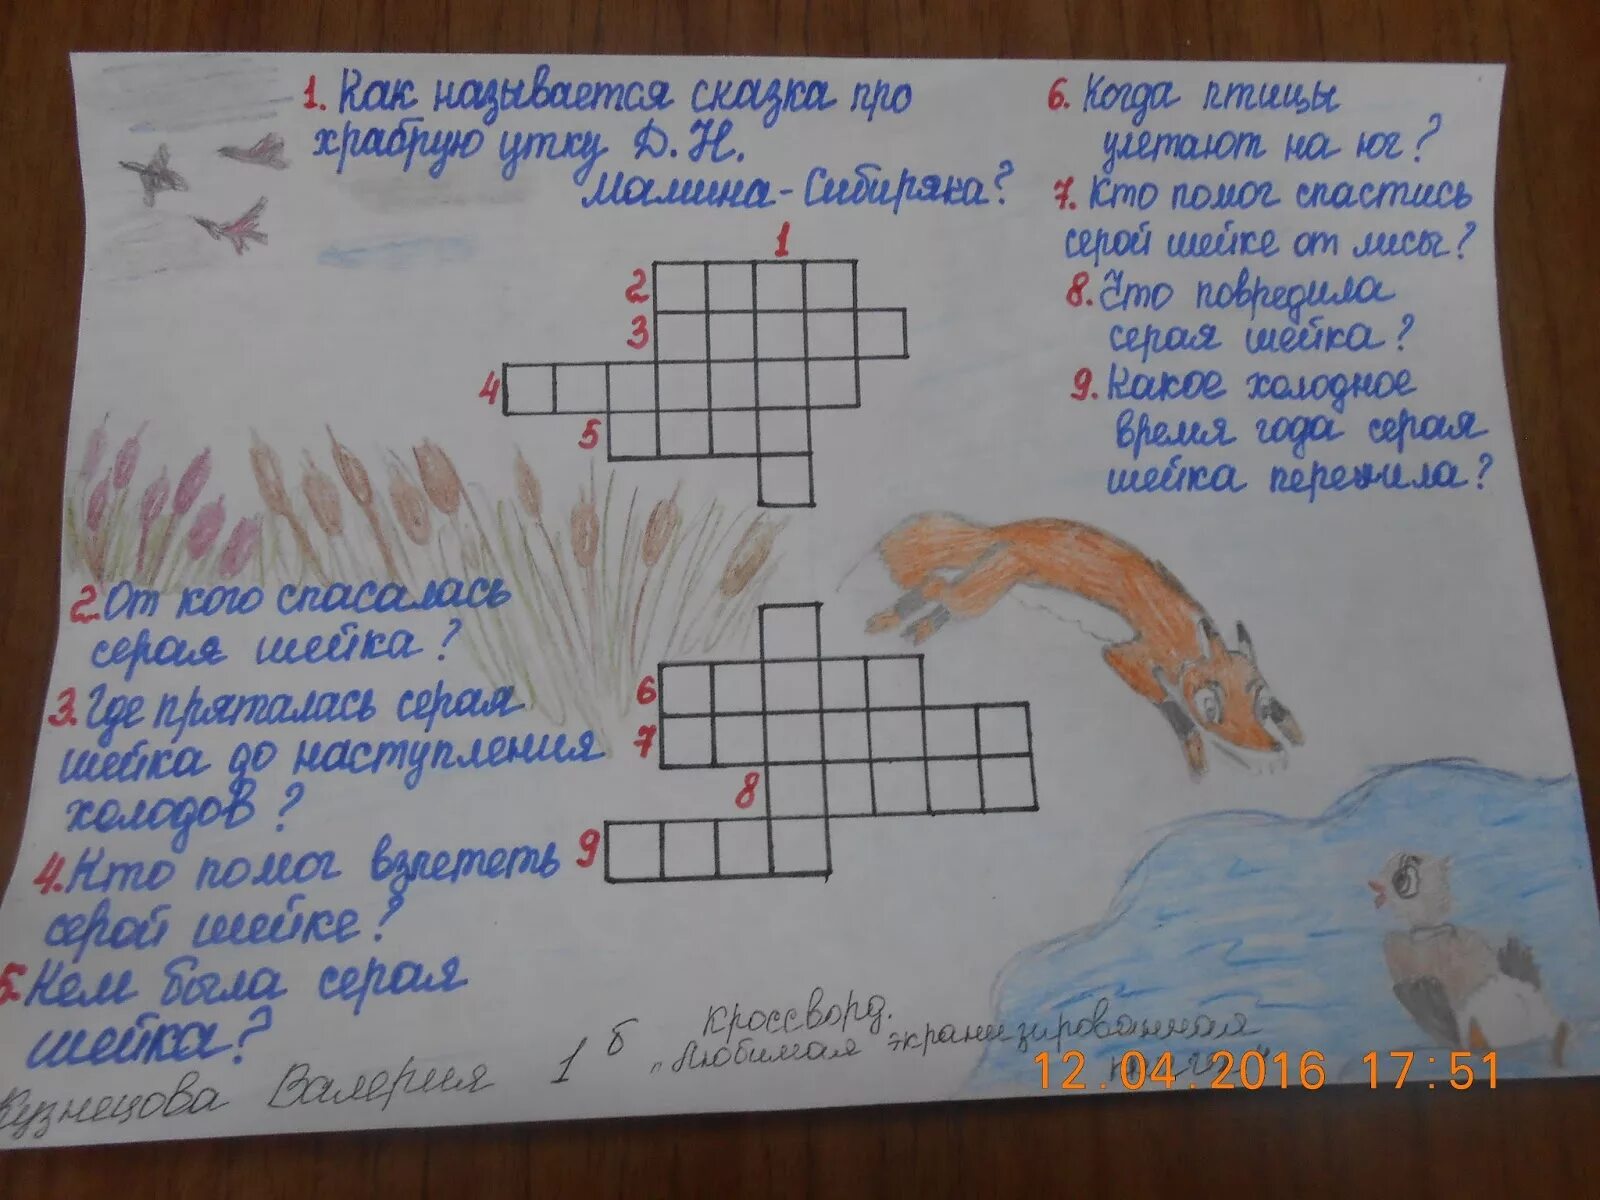 1. Как называется сказка про
храбрую утку Д.Н.
Мамина-Сибиряка?
1
2
3
4
5
2. От кого спасалась
серая шейка?
3. Где пряталась серая
шейка до наступления
холодов?
4. Кто помог взлететь
серой шейке?
5. Кем была серая
шейка?
6. Когда птицы
улетают на юг?
7. Кто помог спастись
серой шейке от лисы?
8. Что повредила
серая шейка?
9. Какое холодное
время года серая
шейка пережила?
6
7
8
9
Кузнецова Валерия 1 б
Кроссворд.
„Любимая экранизированная
12.04.2016 17:51